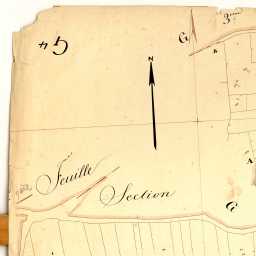 G 4
G
3.me
N
A
Feuille
Section
A
G